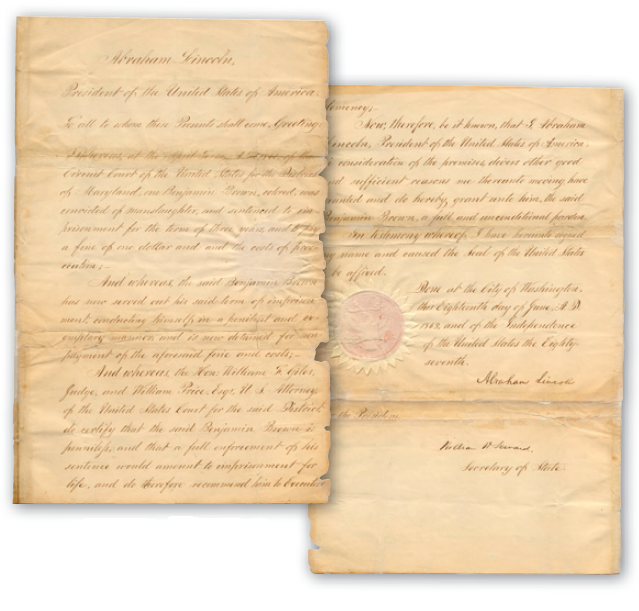 Abraham Lincoln,
President of the United States of America.
To all to whom these Presents shall come, Greeting:
Whereas, at the April Term, of the
Circuit Court of the United States for the District
of Maryland, one Benjamin Brown, colored, was
convicted of manslaughter, and sentenced to im-
prisonment for the term of three years, and to pay
a fine of one dollar and and the costs of prose-
cution;-
And whereas, the said Benjamin Brown
has now served out his said term of imprison-
ment, conducting himself in a penitent and ex-
emplary manner, and is now detained for non-
payment of the aforesaid fine and costs;-
And whereas, the Hon. William F. Giles,
Judge, and William Price, Esqr, U. S. Attorney
of the United States Court for the said District,
do certify that the said Benjamin Brown is
penniless, and that a full enforcement of his
sentence would amount to imprisonment for
life, and do therefore recommend him to Executive
Clemency;-
Now, therefore, be it known, that I, Abraham
Lincoln, President of the United States of America,
in consideration of the premises, divers other good
and sufficient reasons me thereunto moving have
granted and do hereby, grant unto him, the said
Benjamin Brown, a full and unconditional pardon.
In testimony whereof, I have hereunto signed
my name and caused the Seal of the United States
to be affixed.
Done at the City of Washington,
this Eighteenth day of June, A.D.
and of the Independence
of the United States the Eighty-
seventh.
Abraham Lincoln
By the President:
William H. Seward,
Secretary of State.